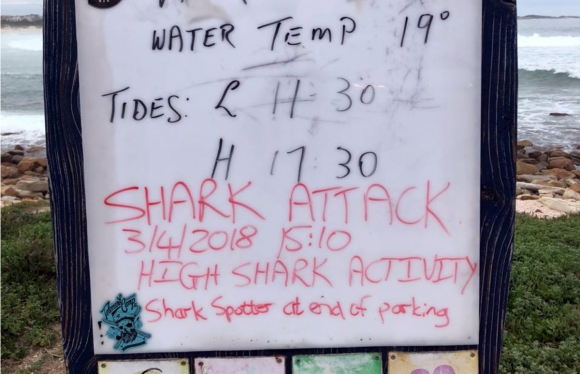 WATER TEMP 19°
TIDES: L 11:30
H 17:30
SHARK ATTACK
3/4/2018 15:10
HIGH SHARK ACTIVITY
Shark Spotter at end of parking